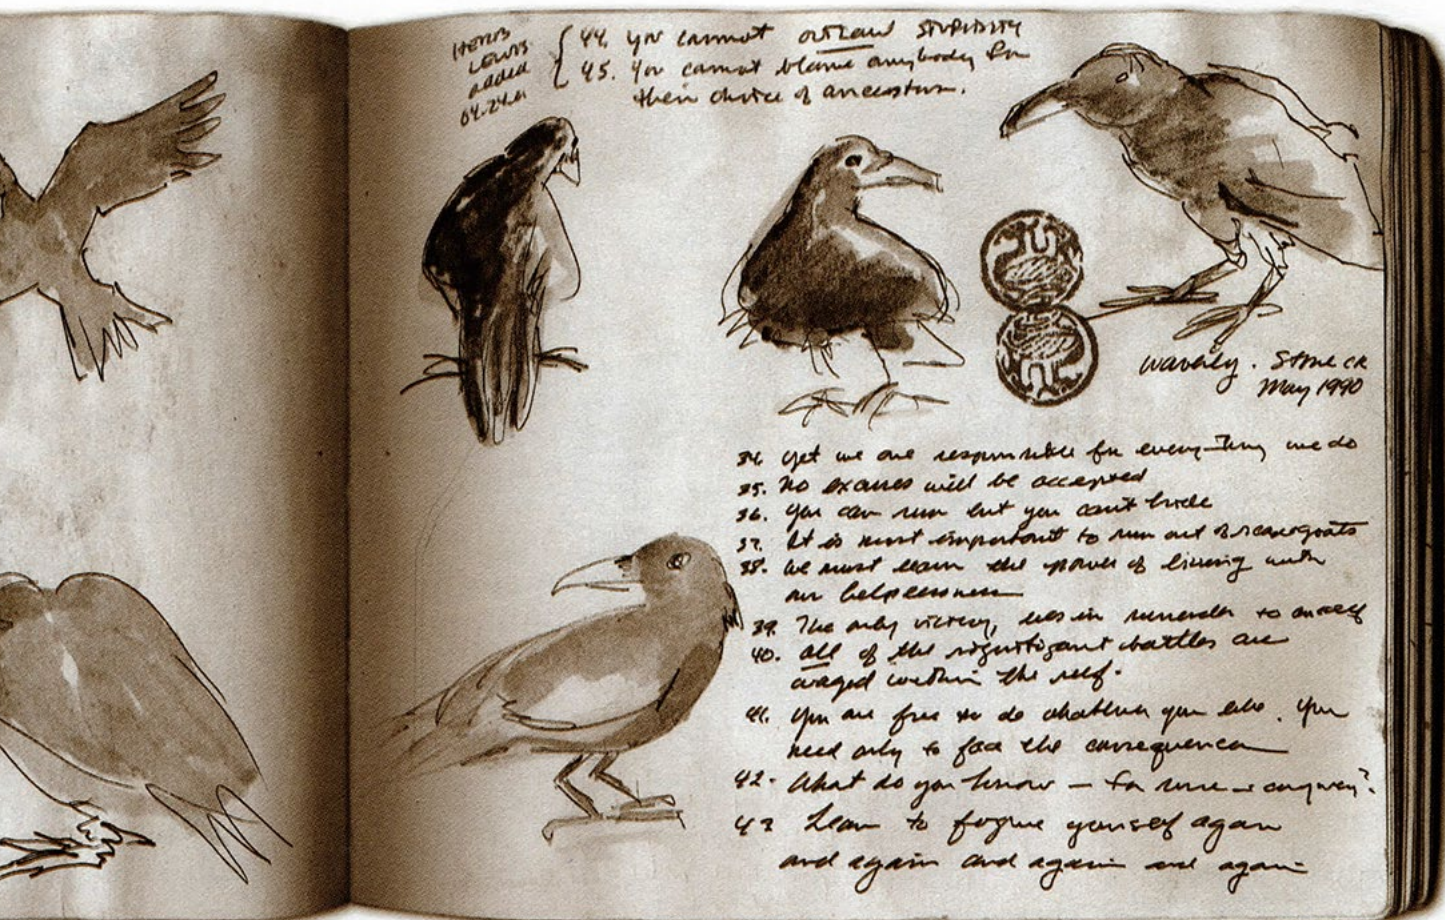 LEWIS
added
44. You cannot outlaw STUPIDITY
45. You cannot blame anybody for
their choice of ancestors.
Waverly. Stone CK
May 1990
34. Yet we are responsible for everything we do
35. No excuses will be accepted
36. You can run but you can't hide
37. It is most important to run out of scapegoats
38. We must learn the power of living with
our helplessness
39. The only victory, lies in surrender to oneself
40. All of the significant battles are
waged within the self.
41. You are free to do whatever you like. You
need only to face the consequences
42. What do you know — for sure — anyway?
43 Learn to forgive yourself again
and again and again and again